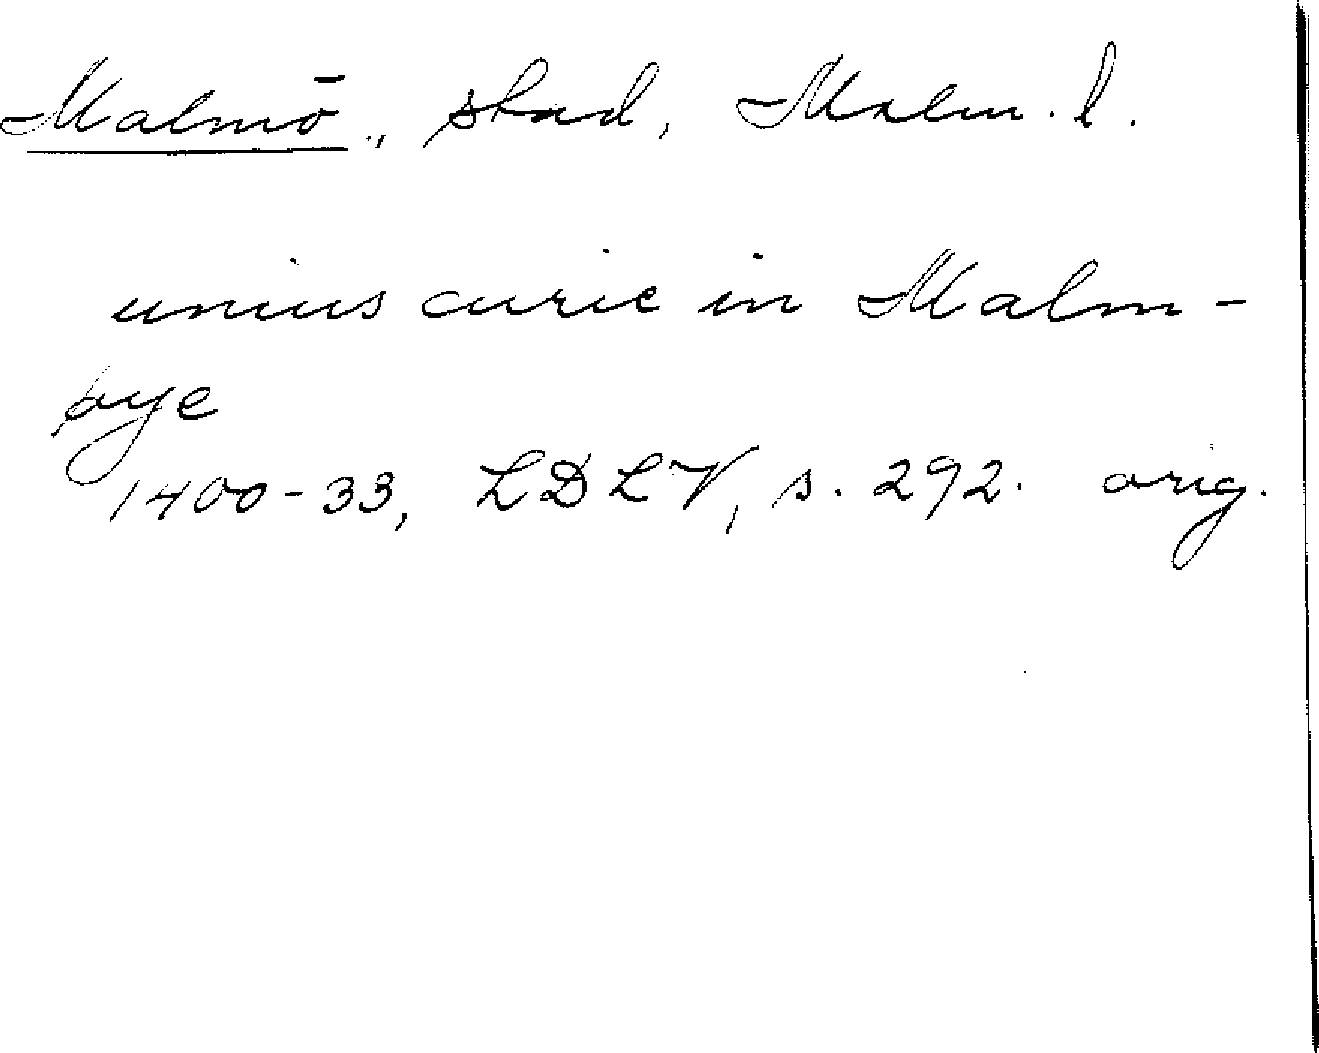 Malmö., stad, Malm. l.
unius curie in Malm-
bye
1400-33, LDLV, s. 292. orig.